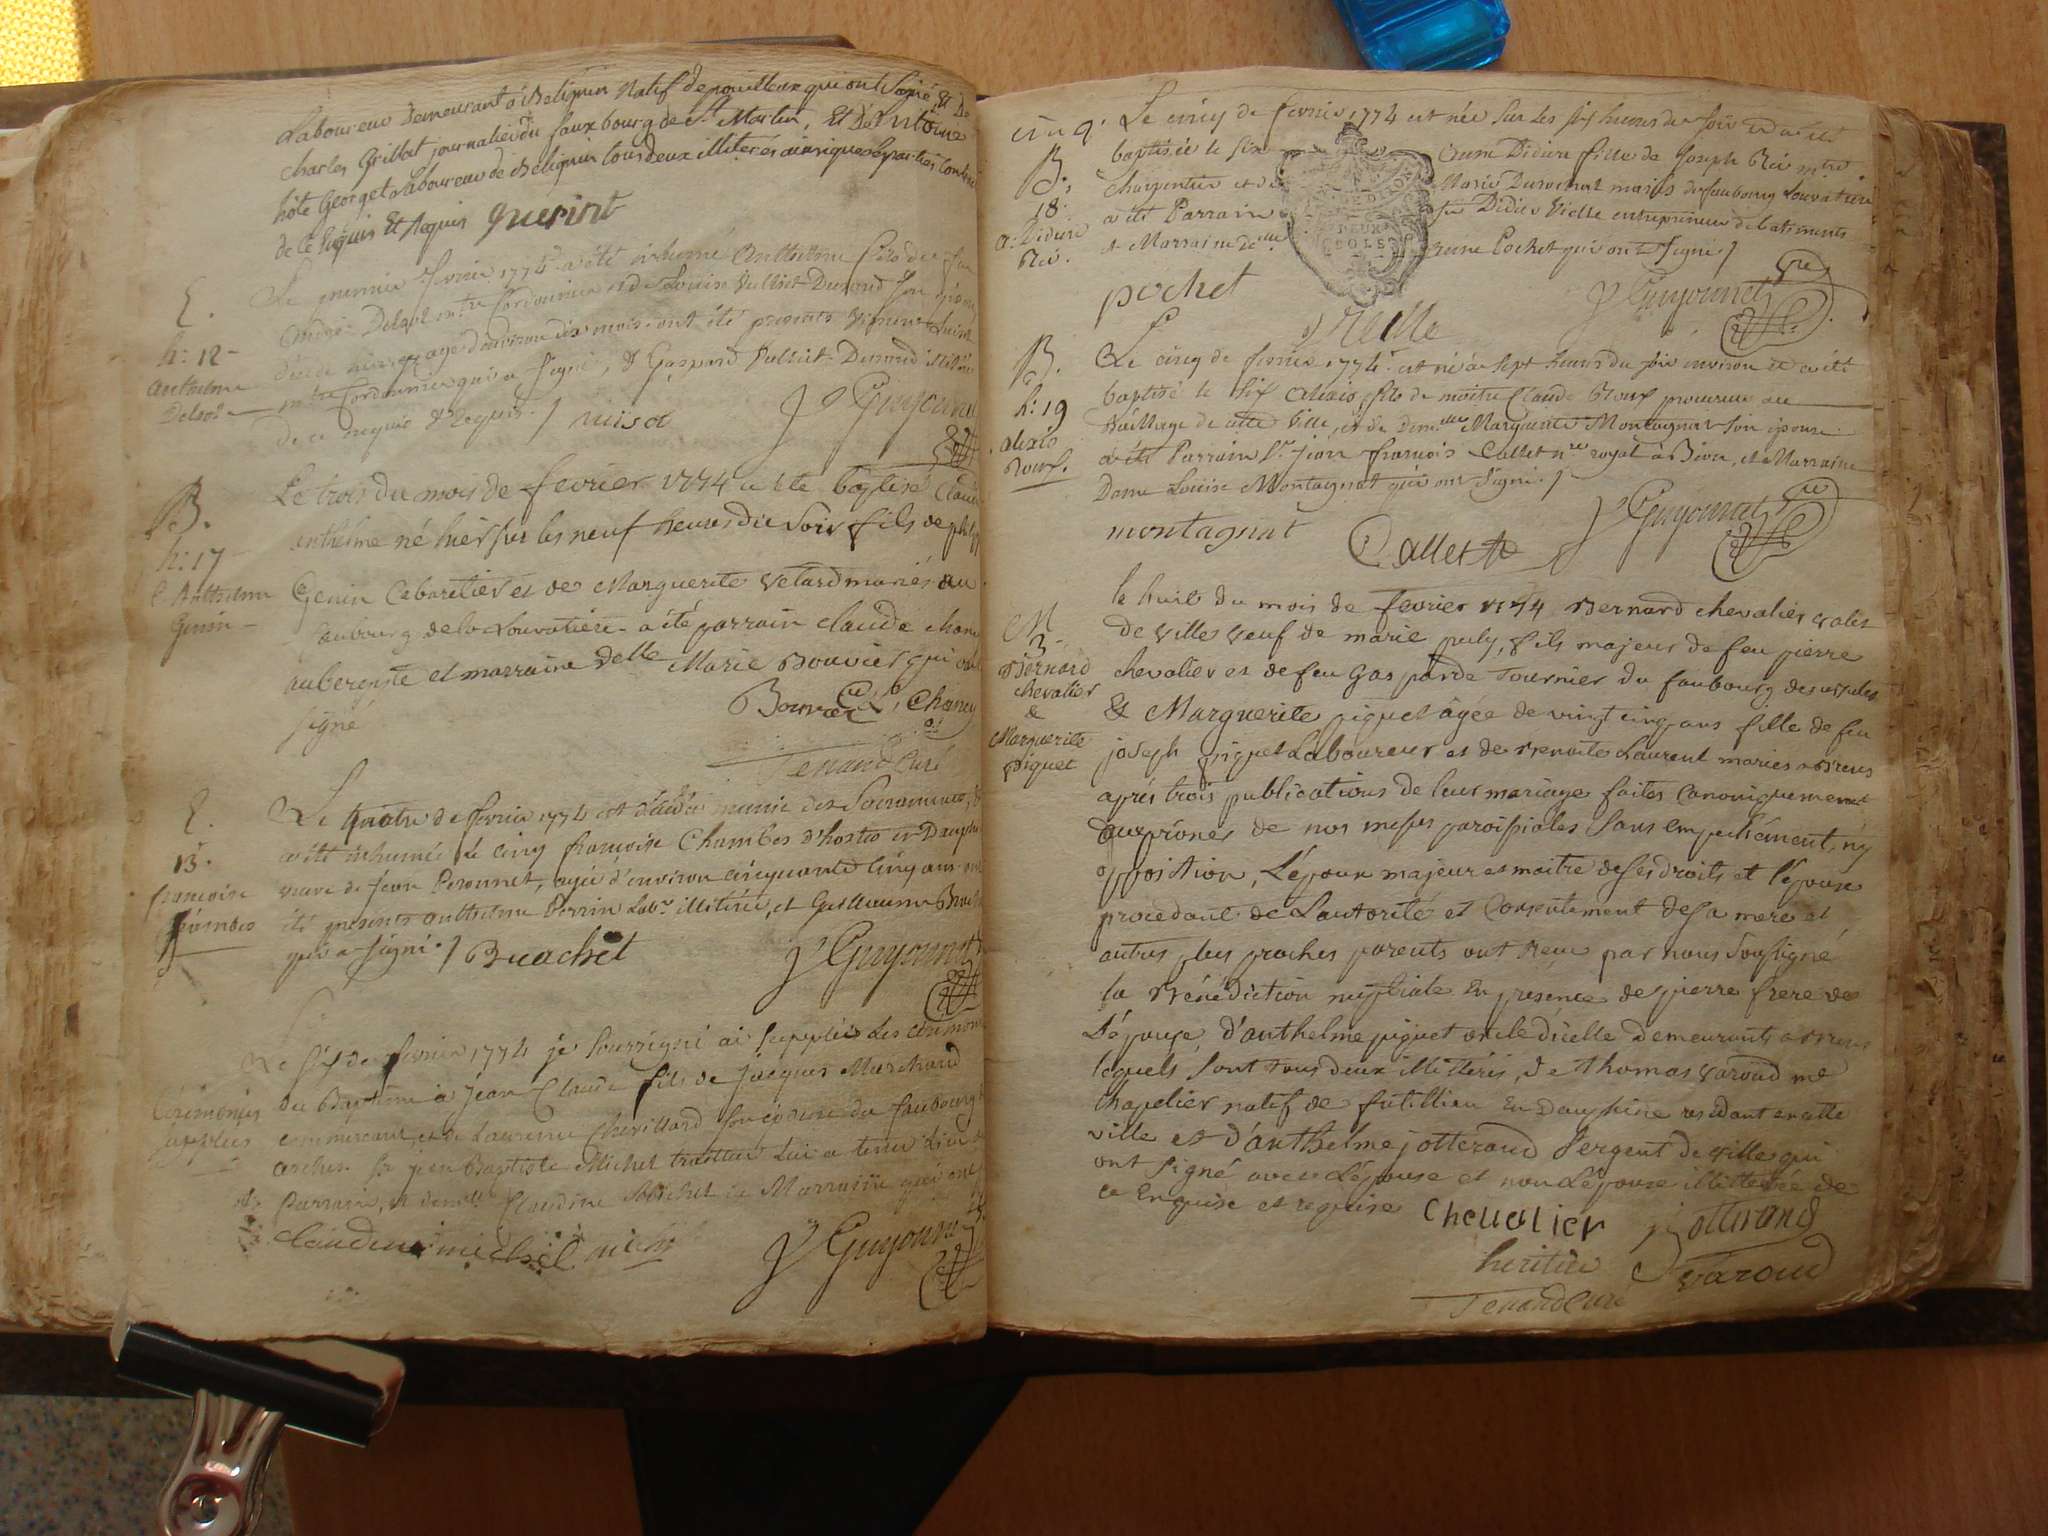 Laboureur Demeurant a Beligneu Natif de pouilleux qui ont Signé, Et De
Charles Grillot journalier du faux bourg de St Martin, Et De Antoine
hôte Georget Laboureur de Beligneu tous deux illiterés
de ce Enquis Et Requis Guerint
E.
N: 12
anthelme
Delsol
Le premier fevrier 1774 a été inhumé Anthelme fils de
André Delsol mtre Cordonnier et de Louise Vulliet Dunand son epouse
décédé hier agé d'environ dix mois ont été presents
mtre Cordonnier qui a signé, & Gaspard Vulliet Dunand illitéré
de ce enquis & requis. /
J Guyonnet
B.
N: 17
C Anthelme
Genin
Le trois du mois de fevrier 1774 a été baptisé Claude
anthelme né hier sur les neuf heures du soir fils de
Genin Cabaretier et de Marguerite Vetard mariés au
faubourg de la Louvatiere a été parrain claude chaney
aubergiste et marraine Delle Marie Bouvier qui ont
signé
Bouvier C. chaney
Tenand Curé
E.
13.
francoise
Chambos
Le quatre de fevrier 1774 est décédée munie des Sacrements, &
a été inhumée Le cinq francoise Chambos d'hostie en Dauphiné
veuve de Jean Peronnet, agée d'environ cinquante cinq ans ont
été presents anthelme Perrin Labr. illitéré, et Guillaume
qui a signé. / Buachet
J Guyonnet
Cérémonies
suppléés
Le six de fevrier 1774 je soussigné ai suppléé Les cérémonies
du Baptême a Jean Claude fils de Jacques Marchand
commercant, et de Laurence Chevillard son épouse du faubourg
sr jean Baptiste Michel traiteur Lui a tenu Lieu de
Parrain, et demlle Claudine Michel de Marraine qui ont
claudine michel
J Guyonnet
cinq.
B.
18.
A: Didiere
Réi.
Le cinq de fevrier 1774 est née sur les six heures du soir et a été
baptisée le six Anne Didiere fille de Joseph Réi mtre
charpentier et de Marie Durochat mariés du faubourg Louvatiere
a été Parrain sr Didier Vielle entrepreneur de batiments
& Marraine delle reine Pochet qui ont signé /
pochet
Vielle
J Guyonnet
B.
N: 19
Alexis
Roux.
Le cinq de fevrier 1774 est né a sept heures du soir environ et a été
baptisé le six Alexis fils de maitre Claude Roux procureur au
Bailliage de cette Ville, et de Demelle Marguerite Montagnat son épouse
a été Parrain Sr Jean francois Callet nre royal a Bion, et Marraine
Dame Louise Montagnat qui ont signé. /
montagnat
Callet
J Guyonnet
M
3
Bernard
chevalier
&
Marguerite
piguet
le huit du mois de fevrier 1774 Bernard chevalier valet
de ville veuf de marie puly, fils majeur de feu pierre
chevalier et de feu Gasparde Tournier du faubourg des ursules
& Marguerite piguet âgée de vingt cinq ans fille de feu
joseph piguet Laboureur et de Benoite Laurent mariés a Brens
aprés trois publications de leur mariage faites canoniquement
aux prônes de nos messes paroissiales sans empechement, ny
opposition, L'époux majeur et maitre de ses droits et l'épouse
procedant de L'autorité et consentement de sa mere et
autres plus proches parents ont reçu par nous soussigné
la Bénédiction nuptiale En presence de pierre frere de
L'épouse, d'anthelme piguet oncle d'icelle demeurants a Brens
lequels sont tous deux illitterés, de thomas varoud me
chapelier natif de futillieu En Dauphiné residant en cette
ville et d'anthelme jotterand sergent de ville qui
ont signé avec L'épouse et non L'épouse illitterée de
ce Enquise et requise
Chevalier jotterand
heritier varoud
Tenand Curé